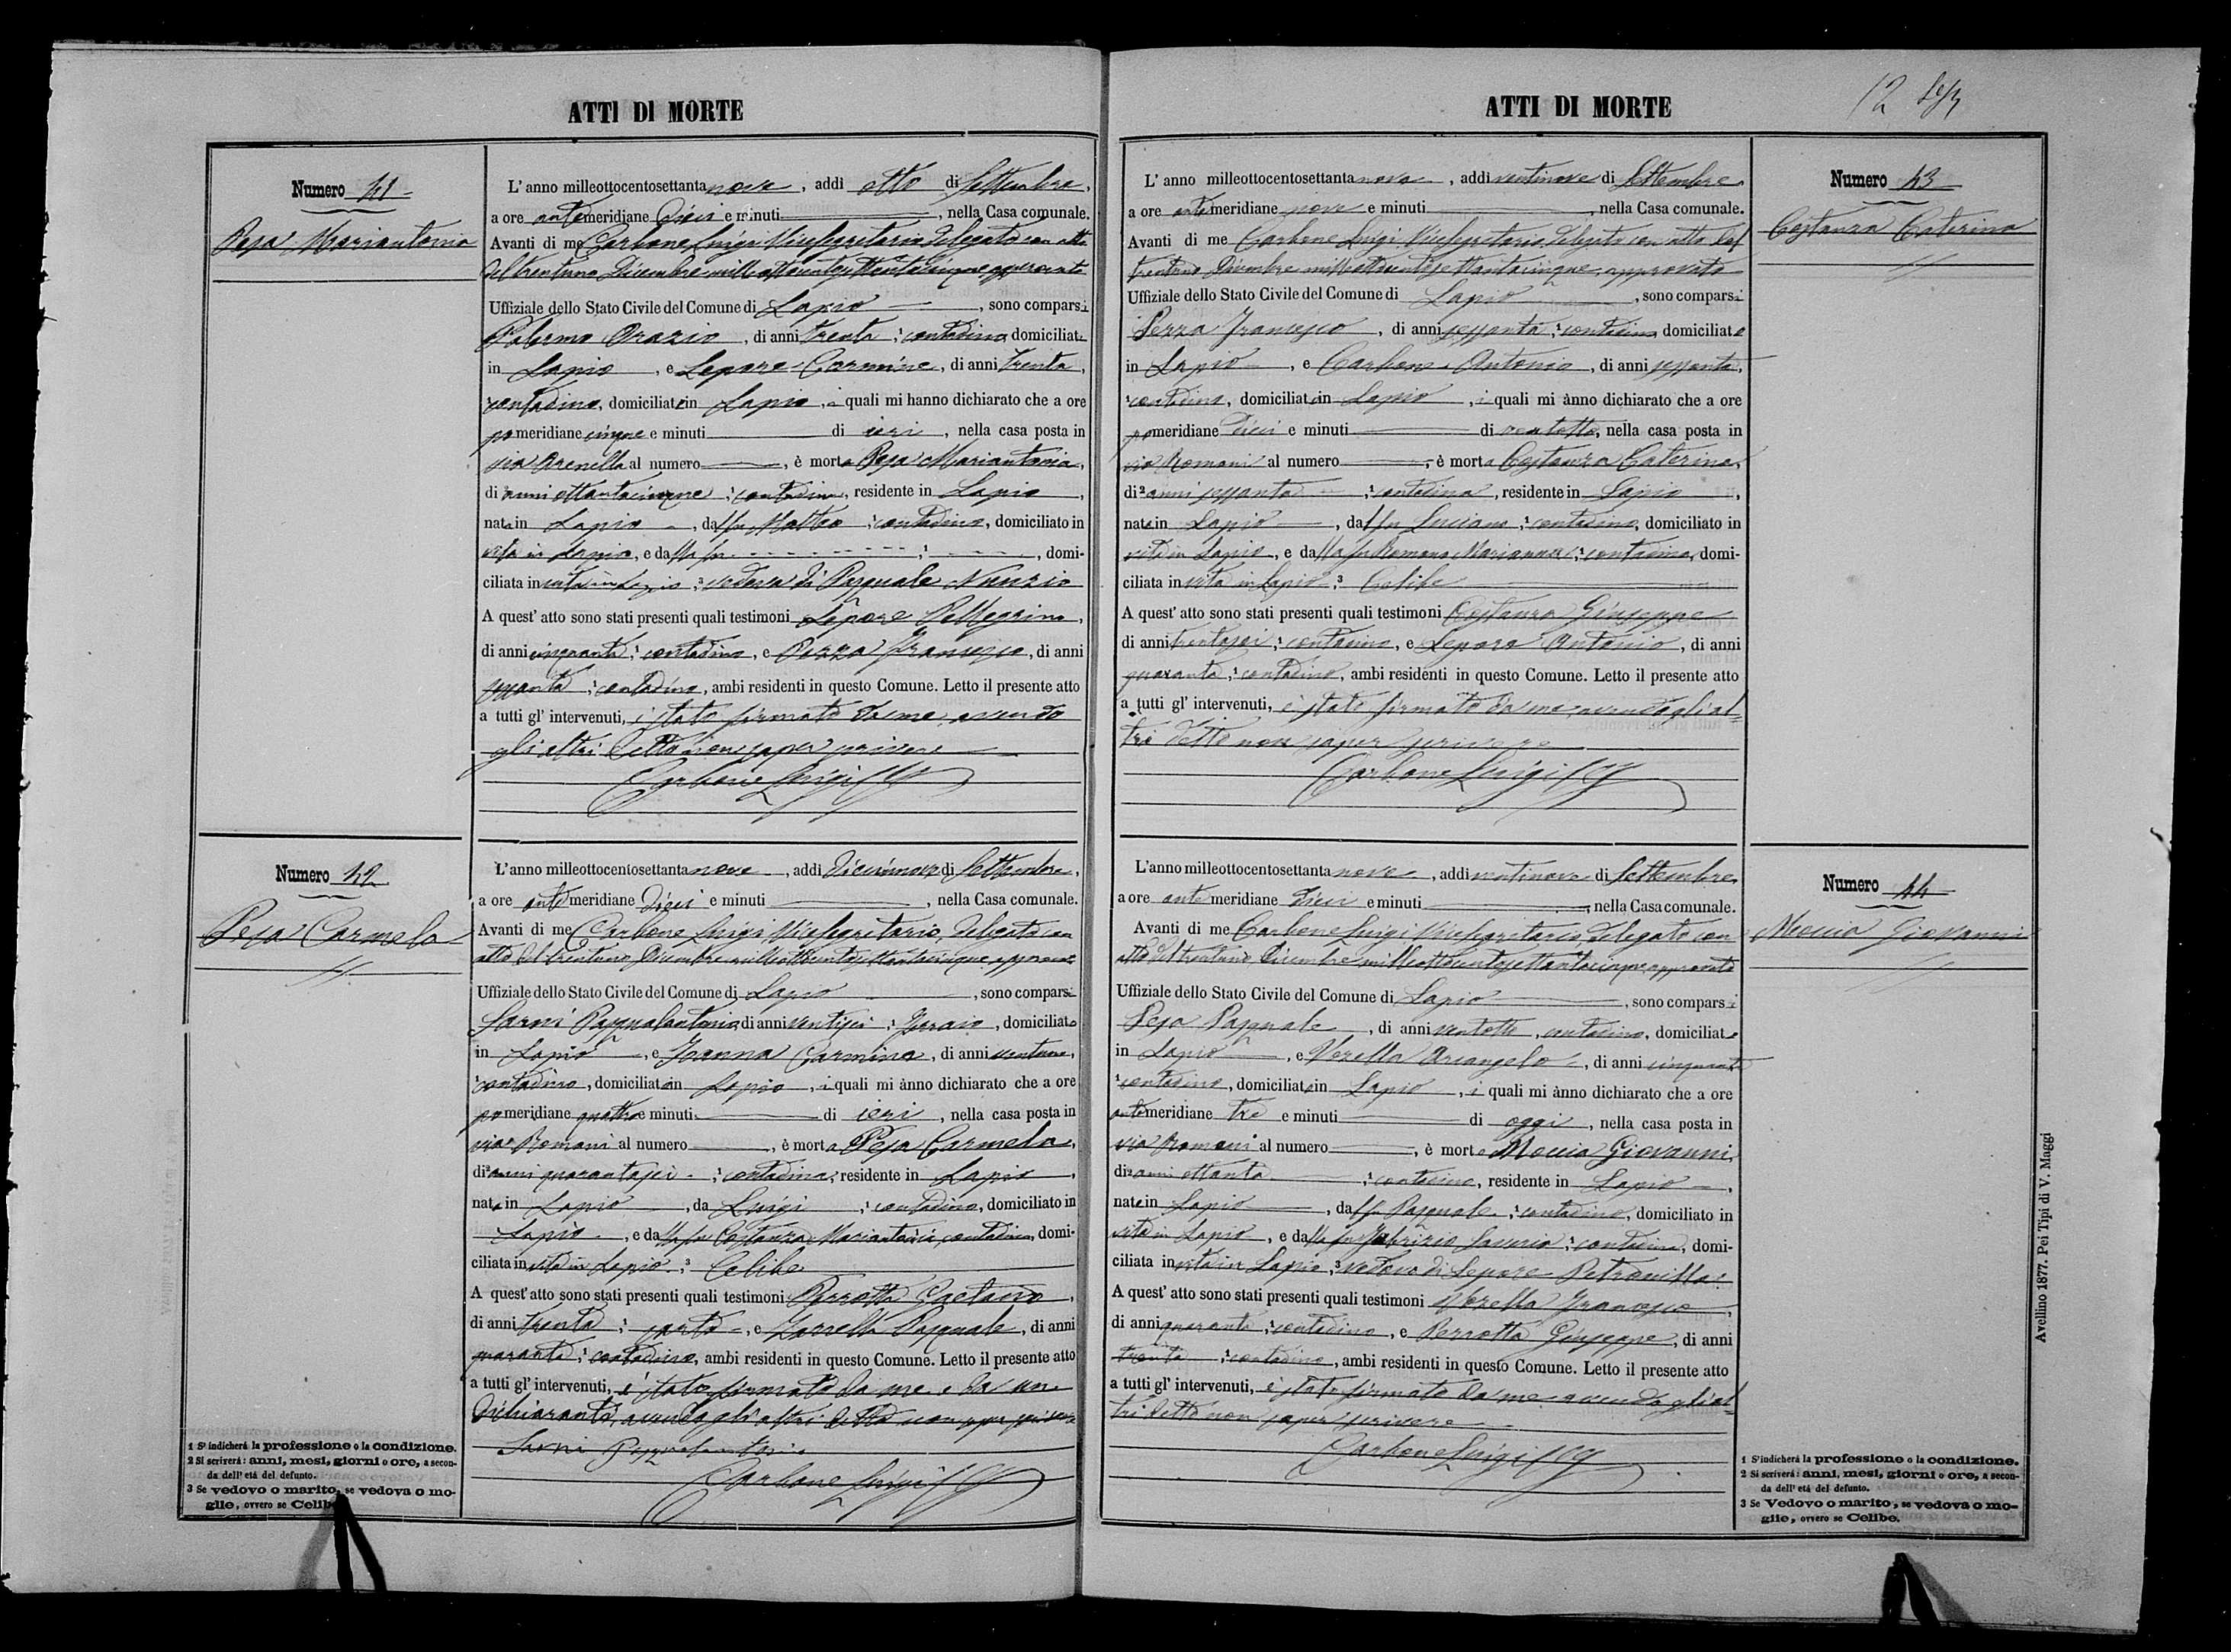 ATTI DI MORTE
Numero 41
Pesa Mariantonia
L' anno milleottocentosettanta nove, addì otto di Settembre,
a ore antemeridiane dieci e minuti, nella Casa comunale.
Avanti di me Carbone Luigi Vicesegretario delegato con atto
del trentuno Dicembre milleottocentosettantacinque approvato
Uffiziale dello Stato Civile del Comune di Lapio, sono comparsi
Palermo Orazio, di anni trenta, contadino domiciliato
in Lapio, e Lepore Carmine, di anni trenta,
contadino, domiciliato in Lapio, i quali mi hanno dichiarato che a ore
pomeridiane cinque e minuti di ieri, nella casa posta in
via Arenella al numero, è morta Pesa Mariantonia,
di 2 anni ottantacinque, contadina, residente in Lapio,
nata in Lapio, dal fu Matteo, contadino, domiciliato in
vita in Lapio, e dalla fu, domi-
ciliata in vita in Lapio, 3 vedova di Pasquale Nunzio
A quest' atto sono stati presenti quali testimoni Lepore Pellegrino,
di anni cinquanta, contadino, e Pezza Francesco, di anni
sessanta, contadino, ambi residenti in questo Comune. Letto il presente atto
a tutti gl' intervenuti, è stato firmato da me, avendo
gli altri detto non saper scrivere
Carbone Luigi
Numero 42
Pesa Carmela
L'anno milleottocentosettanta nove, addì diecinnove di Settembre,
a ore antemeridiane dieci e minuti, nella Casa comunale.
Avanti di me Carbone Luigi Vicesegretario delegato con
atto del trentuno Dicembre milleottocentosettantacinque approvato
Uffiziale dello Stato Civile del Comune di Lapio, sono comparsi
Sarni Pasqualantonio di anni ventisei, domiciliato
in Lapio, e Carmine, di anni ventuno,
1 contadino, domiciliato in Lapio, i quali mi ànno dichiarato che a ore
pomeridiane quattro e minuti di ieri, nella casa posta in
via Romani al numero, è morta Pesa Carmela,
di 2 anni quarantasei, contadina, residente in Lapio,
nata in Lapio, da Luigi, contadino, domiciliato in
Lapio, e dalla fu Costanza Mariantonia, contadina, domi-
ciliata in vita in Lapio, 3 Celibe
A quest' atto sono stati presenti quali testimoni Perrotta Gaetano,
di anni trenta, sarto, e Pasquale, di anni
quaranta, contadino, ambi residenti in questo Comune. Letto il presente atto
a tutti gl' intervenuti, è stato firmato da me e da un
dichiarante, avendo gli altri detto non saper scrivere
Sarni Pasqualantonio
Carbone Luigi
1 S' indicherà la professione o la condizione.
2 Si scriverà: anni, mesi, giorni o ore, a secon-
da dell' età del defunto.
3 Se vedovo o marito, se vedova o mo-
glie, ovvero se Celibe
ATTI DI MORTE
12
Numero 43
Costanza Caterina
L' anno milleottocentosettanta nove, addì ventinove di Settembre,
a ore antemeridiane nove e minuti, nella Casa comunale.
Avanti di me Carbone Luigi Vicesegretario delegato con atto del
trentuno Dicembre milleottocentosettantacinque approvato
Uffiziale dello Stato Civile del Comune di Lapio, sono comparsi
Pezza Francesco, di anni sessanta, 1 contadino domiciliato
in Lapio, e Carbone Antonio, di anni sessanta,
1 contadino, domiciliato in Lapio, i quali mi ànno dichiarato che a ore
pomeridiane dieci e minuti di ventotto, nella casa posta in
via Romani al numero, è morta Costanza Caterina,
di 2 anni sessanta, 1 contadina, residente in Lapio,
nata in Lapio, dal fu Luciano, 1 contadino, domiciliato in
vita in Lapio, e dalla fu Romano Marianna, 1 contadina, domi-
ciliata in vita in Lapio, 3 Celibe
A quest' atto sono stati presenti quali testimoni Costanza Giuseppe
di anni trentasei, 1 contadino, e Lepore Antonio, di anni
quaranta, 1 contadino, ambi residenti in questo Comune. Letto il presente atto
a tutti gl' intervenuti, è stato firmato da me, avendo gli al=
tri detto non saper scrivere
Carbone Luigi
Numero 44
Moccia Giovanni
L'anno milleottocentosettanta nove, addì ventinove di Settembre,
a ore antemeridiane dieci e minuti, nella Casa comunale.
Avanti di me Carbone Luigi Vicesegretario delegato con
atto del trentuno Dicembre milleottocentosettantacinque approvato
Uffiziale dello Stato Civile del Comune di Lapio, sono comparsi
Pesa Pasquale, di anni ventotto, contadino, domiciliato
in Lapio, e Vozella Arcangelo, di anni cinquanta
1 contadino, domiciliato in Lapio, i quali mi ànno dichiarato che a ore
antemeridiane tre e minuti di oggi, nella casa posta in
via Romani al numero, è morto Moccia Giovanni,
di 2 anni ottanta, 1 contadino, residente in Lapio,
nato in Lapio, dal fu Pasquale, 1 contadino, domiciliato in
vita in Lapio, e dalla fu Fabrizio Saveria, 1 contadina, domi-
ciliata in vita in Lapio, 3 vedovo di Lepore Petronilla.
A quest' atto sono stati presenti quali testimoni Vozella Francesco,
di anni quaranta, 1 contadino, e Perrotta Giuseppe, di anni
trenta, 1 contadino, ambi residenti in questo Comune. Letto il presente atto
a tutti gl' intervenuti, è stato firmato da me avendo gli al=
tri detto non saper scrivere
Carbone Luigi
1 S'indicherà la professione o la condizione.
2 Si scriverà: anni, mesi, giorni o ore, a secon-
da dell' età del defunto.
3 Se Vedovo o marito, se vedova o mo-
glie, ovvero se Celibe.
Avellino 1877. Pei Tipi di V. Maggi